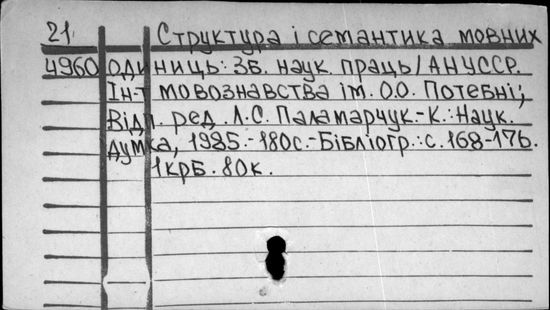 21. Структура і семантика мовних
4960 одиниць: Зб. наук. праць / АН УССР.
Ін-т мовознавства ім. О.О. Потебні;
Відп. ред. Л.С. Паламарчук.-К.: Наук.
думка, 1985.-180с.-Бібліогр.: с.168-176.
1крб. 80к.